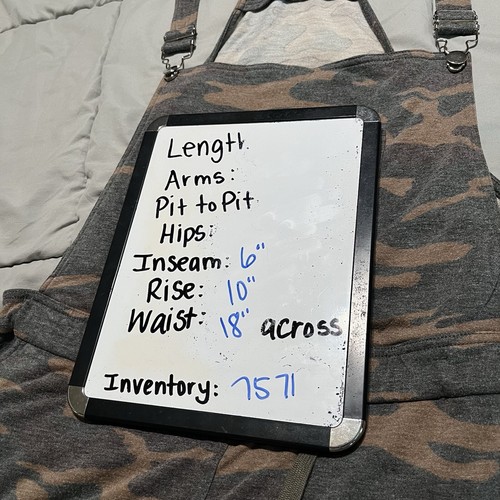 Length
Arms:
Pit to Pit
Hips:
Inseam: 6"
Rise: 10"
Waist: 18" across
Inventory: 7571